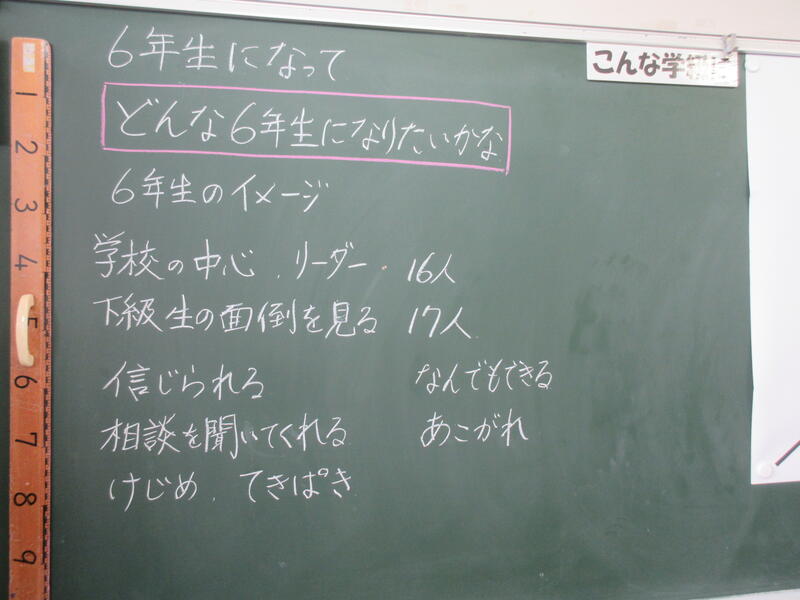 6年生になって
どんな6年生になりたいかな
6年生のイメージ
学校の中心、リーダー 16人
下級生の面倒を見る 17人
信じられる なんでもできる
相談を聞いてくれる あこがれ
けじめ、てきぱき
こんな学級に
1
2
3
4
5
6
7
8
9